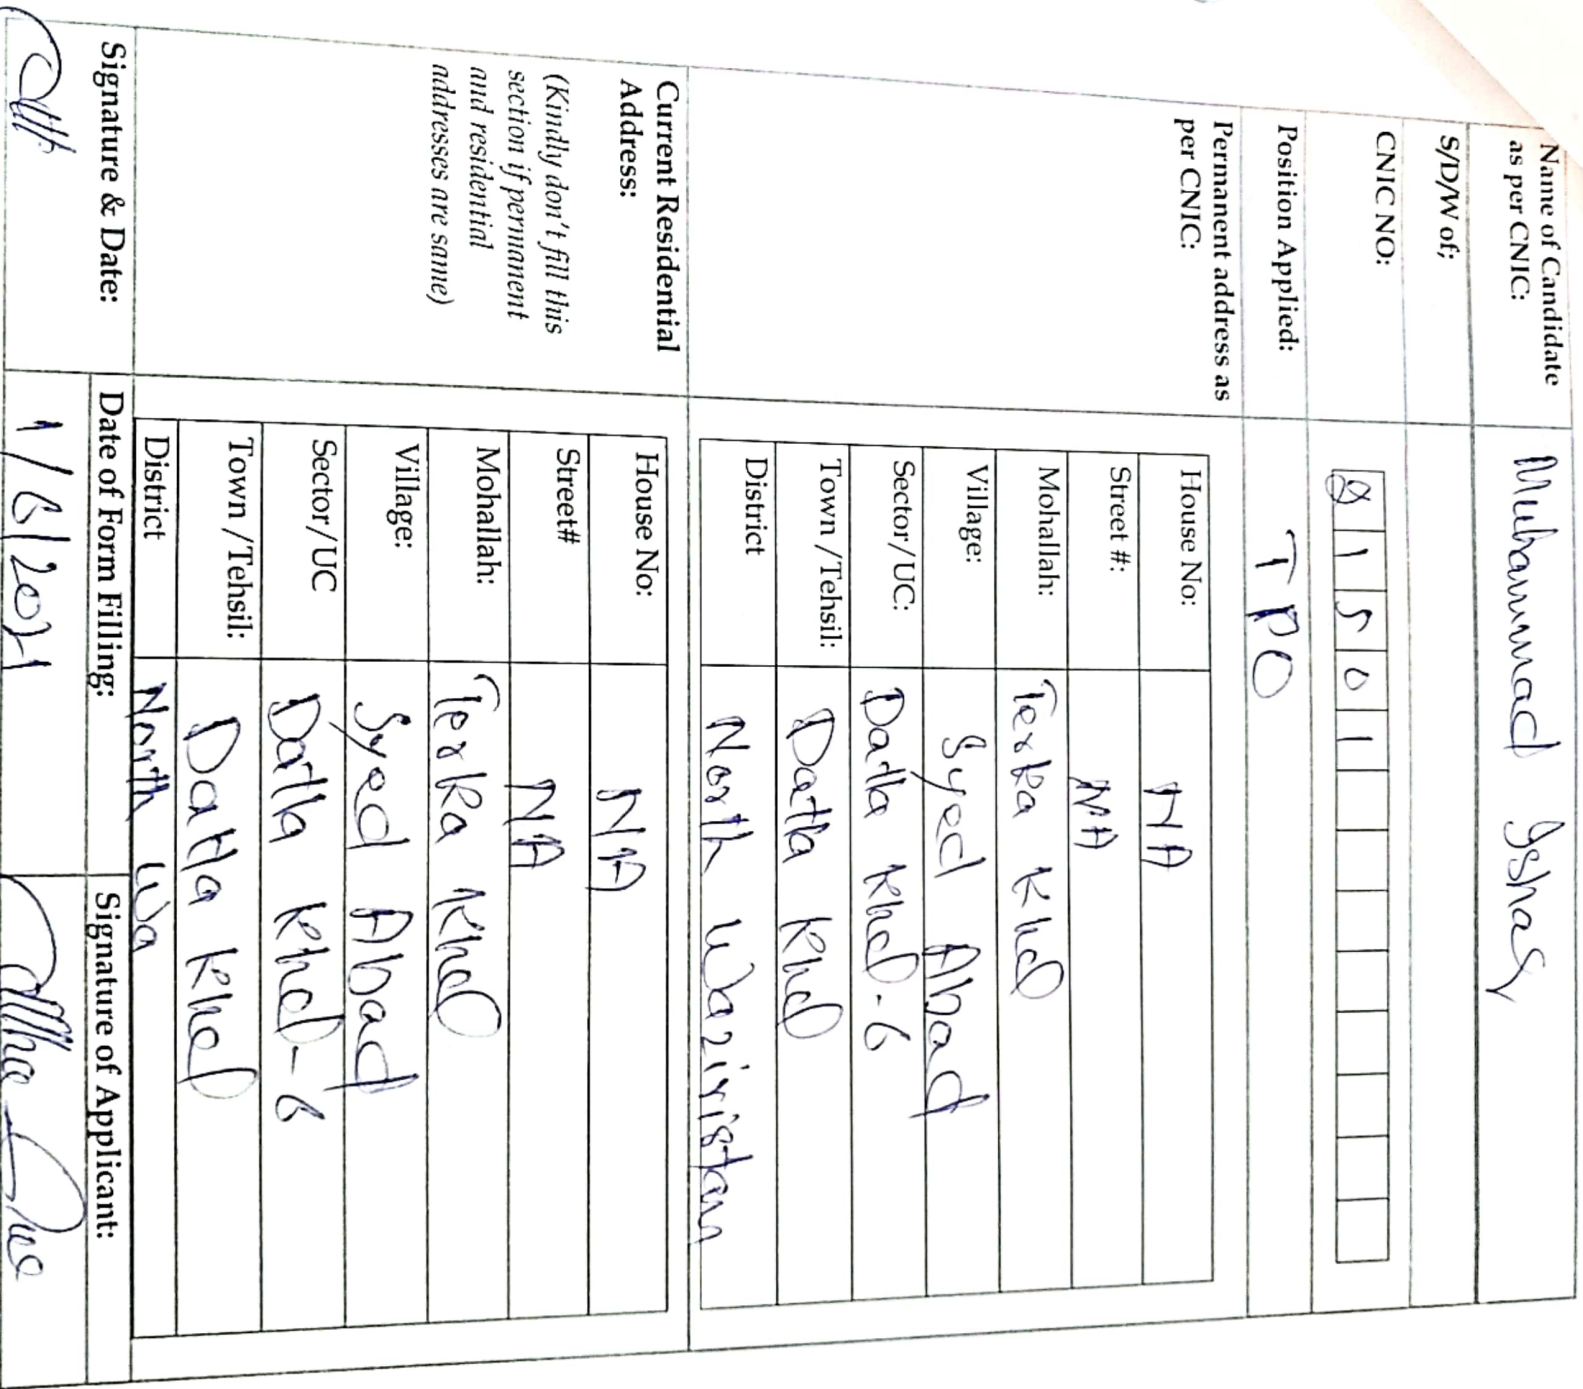 Name of Candidate as per CNIC: Muhammad Ishaq
S/D/W of;
CNIC NO: 8 1 5 0 1
Position Applied: TPO
Permanent address as per CNIC:
House No: NA
Street #: NA
Mohallah: Terka Khel
Village: Syed Abad
Sector/UC: Datta Khel-6
Town /Tehsil: Datta Khel
District North Waziristan
Current Residential Address:
(Kindly don't fill this section if permanent and residential addresses are same)
House No: NA
Street# NA
Mohallah: Terka Khel
Village: Syed Abad
Sector/UC Datta Khel-6
Town /Tehsil: Datta Khel
District North Wa
Signature & Date: Date of Form Filling: Signature of Applicant:
1/6/2021